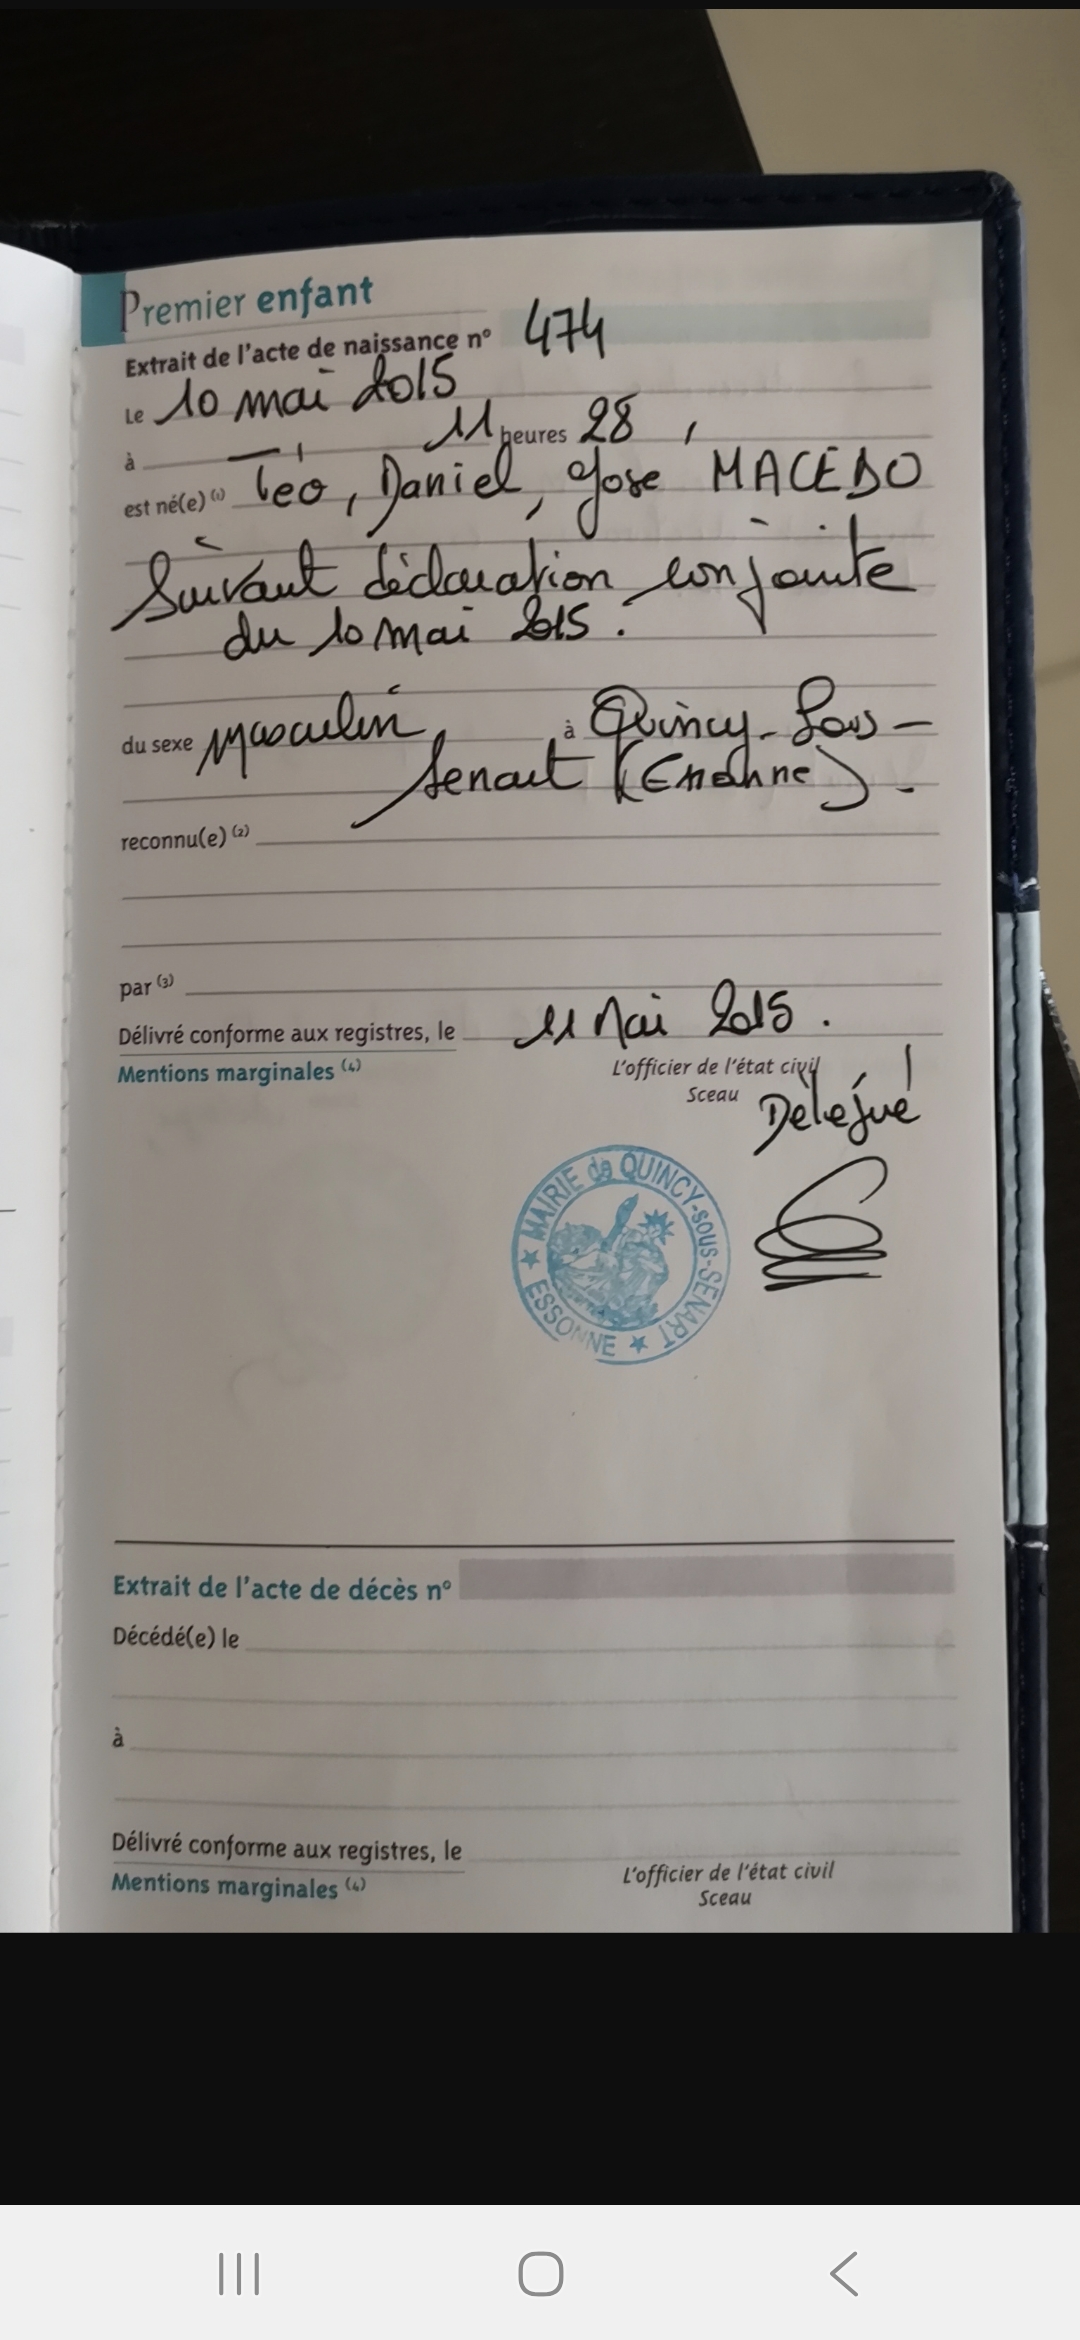 Premier enfant
Extrait de l'acte de naissance n° 474
Le 10 mai 2015
à 11 heures 28,
est né(e) (1) Léo, Daniel, José MACEDO
Suivant déclaration conjointe
du 10 mai 2015.
du sexe Masculin, à Quincy-Sous-
Senart (Essonne).
reconnu(e) (2)
par (3)
Délivré conforme aux registres, le 11 Mai 2015.
Mentions marginales (4)
L'officier de l'état civil
Sceau
Délégué
MAIRIE de QUINCY-sous-SENART
★ ESSONNE ★
Extrait de l'acte de décès n°
Décédé(e) le
à
Délivré conforme aux registres, le
Mentions marginales (4)
L'officier de l'état civil
Sceau